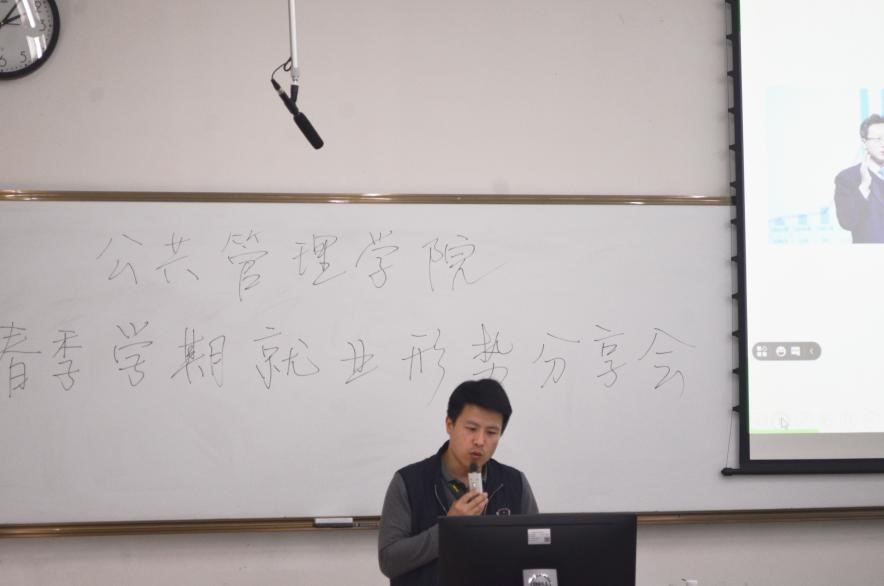 公共管理学院
春季学期就业形势分享会